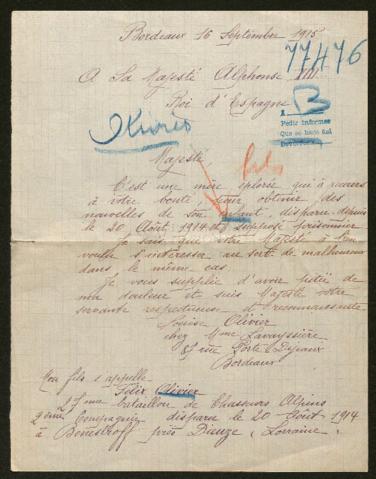 Bordeaux 16 Septembre 1915
77476
A Sa Majesté Alphonse XIII
Roi d'Espagne
B
Pedir informes
Que se hace del
Olivier
Majesté,
hijo
C'est une mère éplorée qui a recours
à votre bonté pour obtenir des
nouvelles de son enfant, disparu depuis
le 20 Août 1914 et supposé prisonnier
Je sais que votre Majesté a bien
voulu s'intéresser au sort de malheureux
dans le même cas.
Je vous supplie d'avoir pitié de
ma douleur et suis Majesté votre
servante respectueuse et reconnaissante
Louise Olivier
chez Mme Lavayssière
rue Porte Dijeaux
Bordeaux
Mon fils s'appelle
Félix Olivier
27me bataillon de Chasseurs Alpins
2ème Compagnie disparu le 20 Août 1914
à Benestroff près Dieuze, Lorraine.